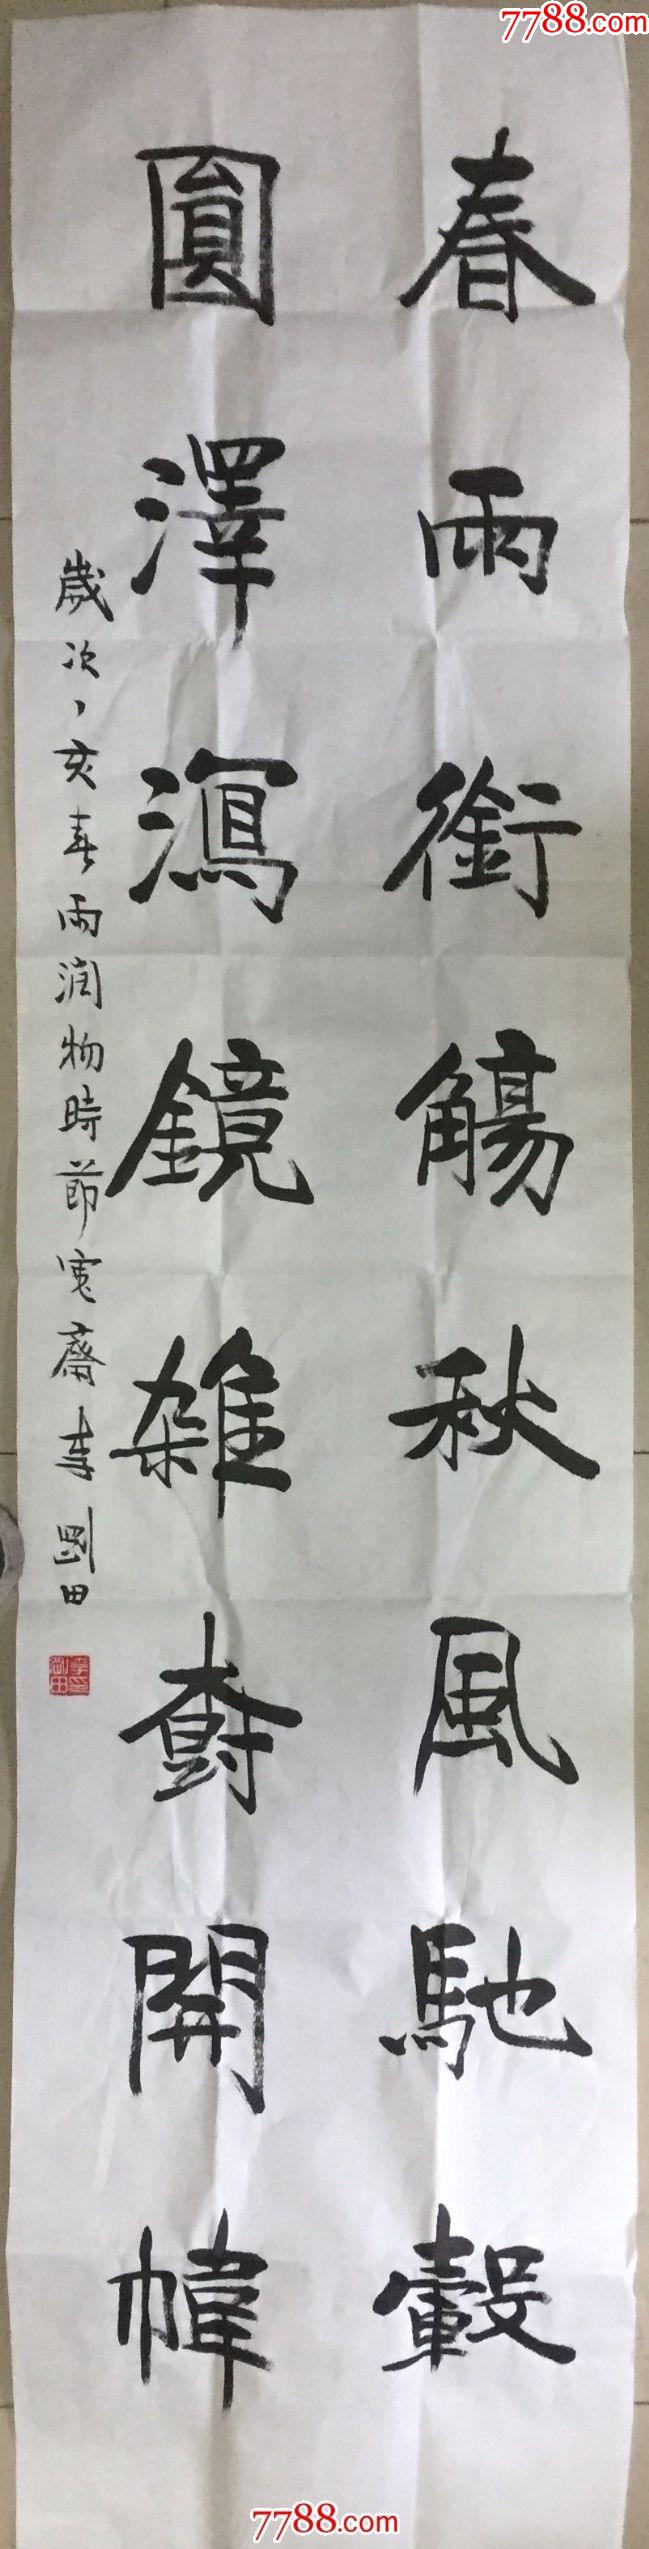 7788.com
春雨銜觴秋風馳轂
圓澤瀉鏡雜樹開幃
歲次亥春雨潤物時節寬齋李剛田
7788.com